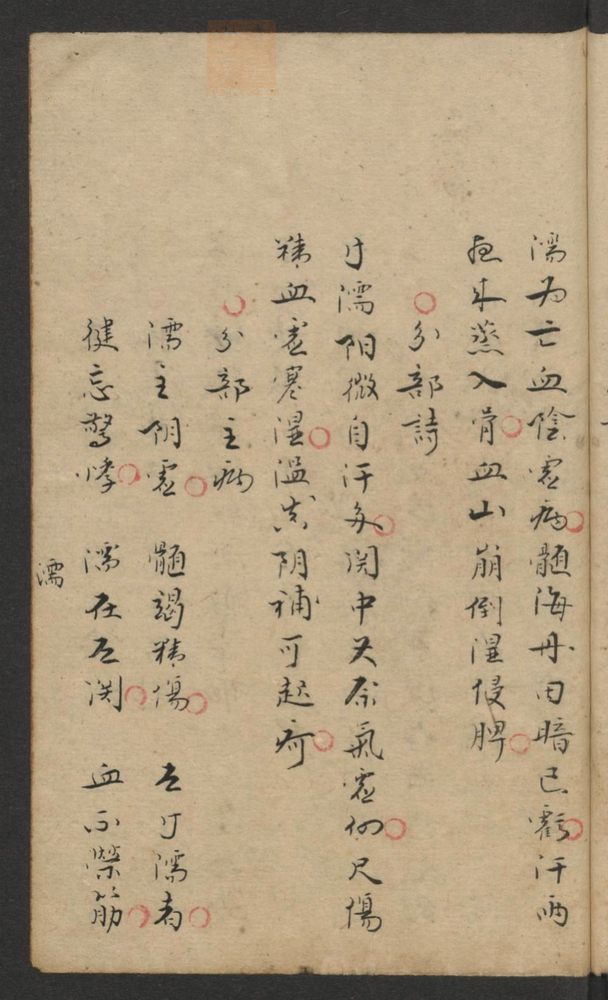 濡为亡血陰虚病髓海丹田暗已虧汗雨
夜来蒸入骨血山崩倒湿侵脾
分部詩
寸濡阳微自汗多関中其奈氣虚何尺傷
精血虚寒湿温其阴補可起疴
分部主病
濡主阴虚 髓竭精傷 左寸濡者
健忘驚悸 濡在左関 血不榮筋
濡